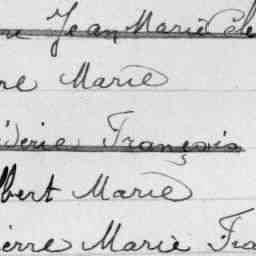 Jean Marie
Marie
François
lbert Marie
ierre Marie Fra